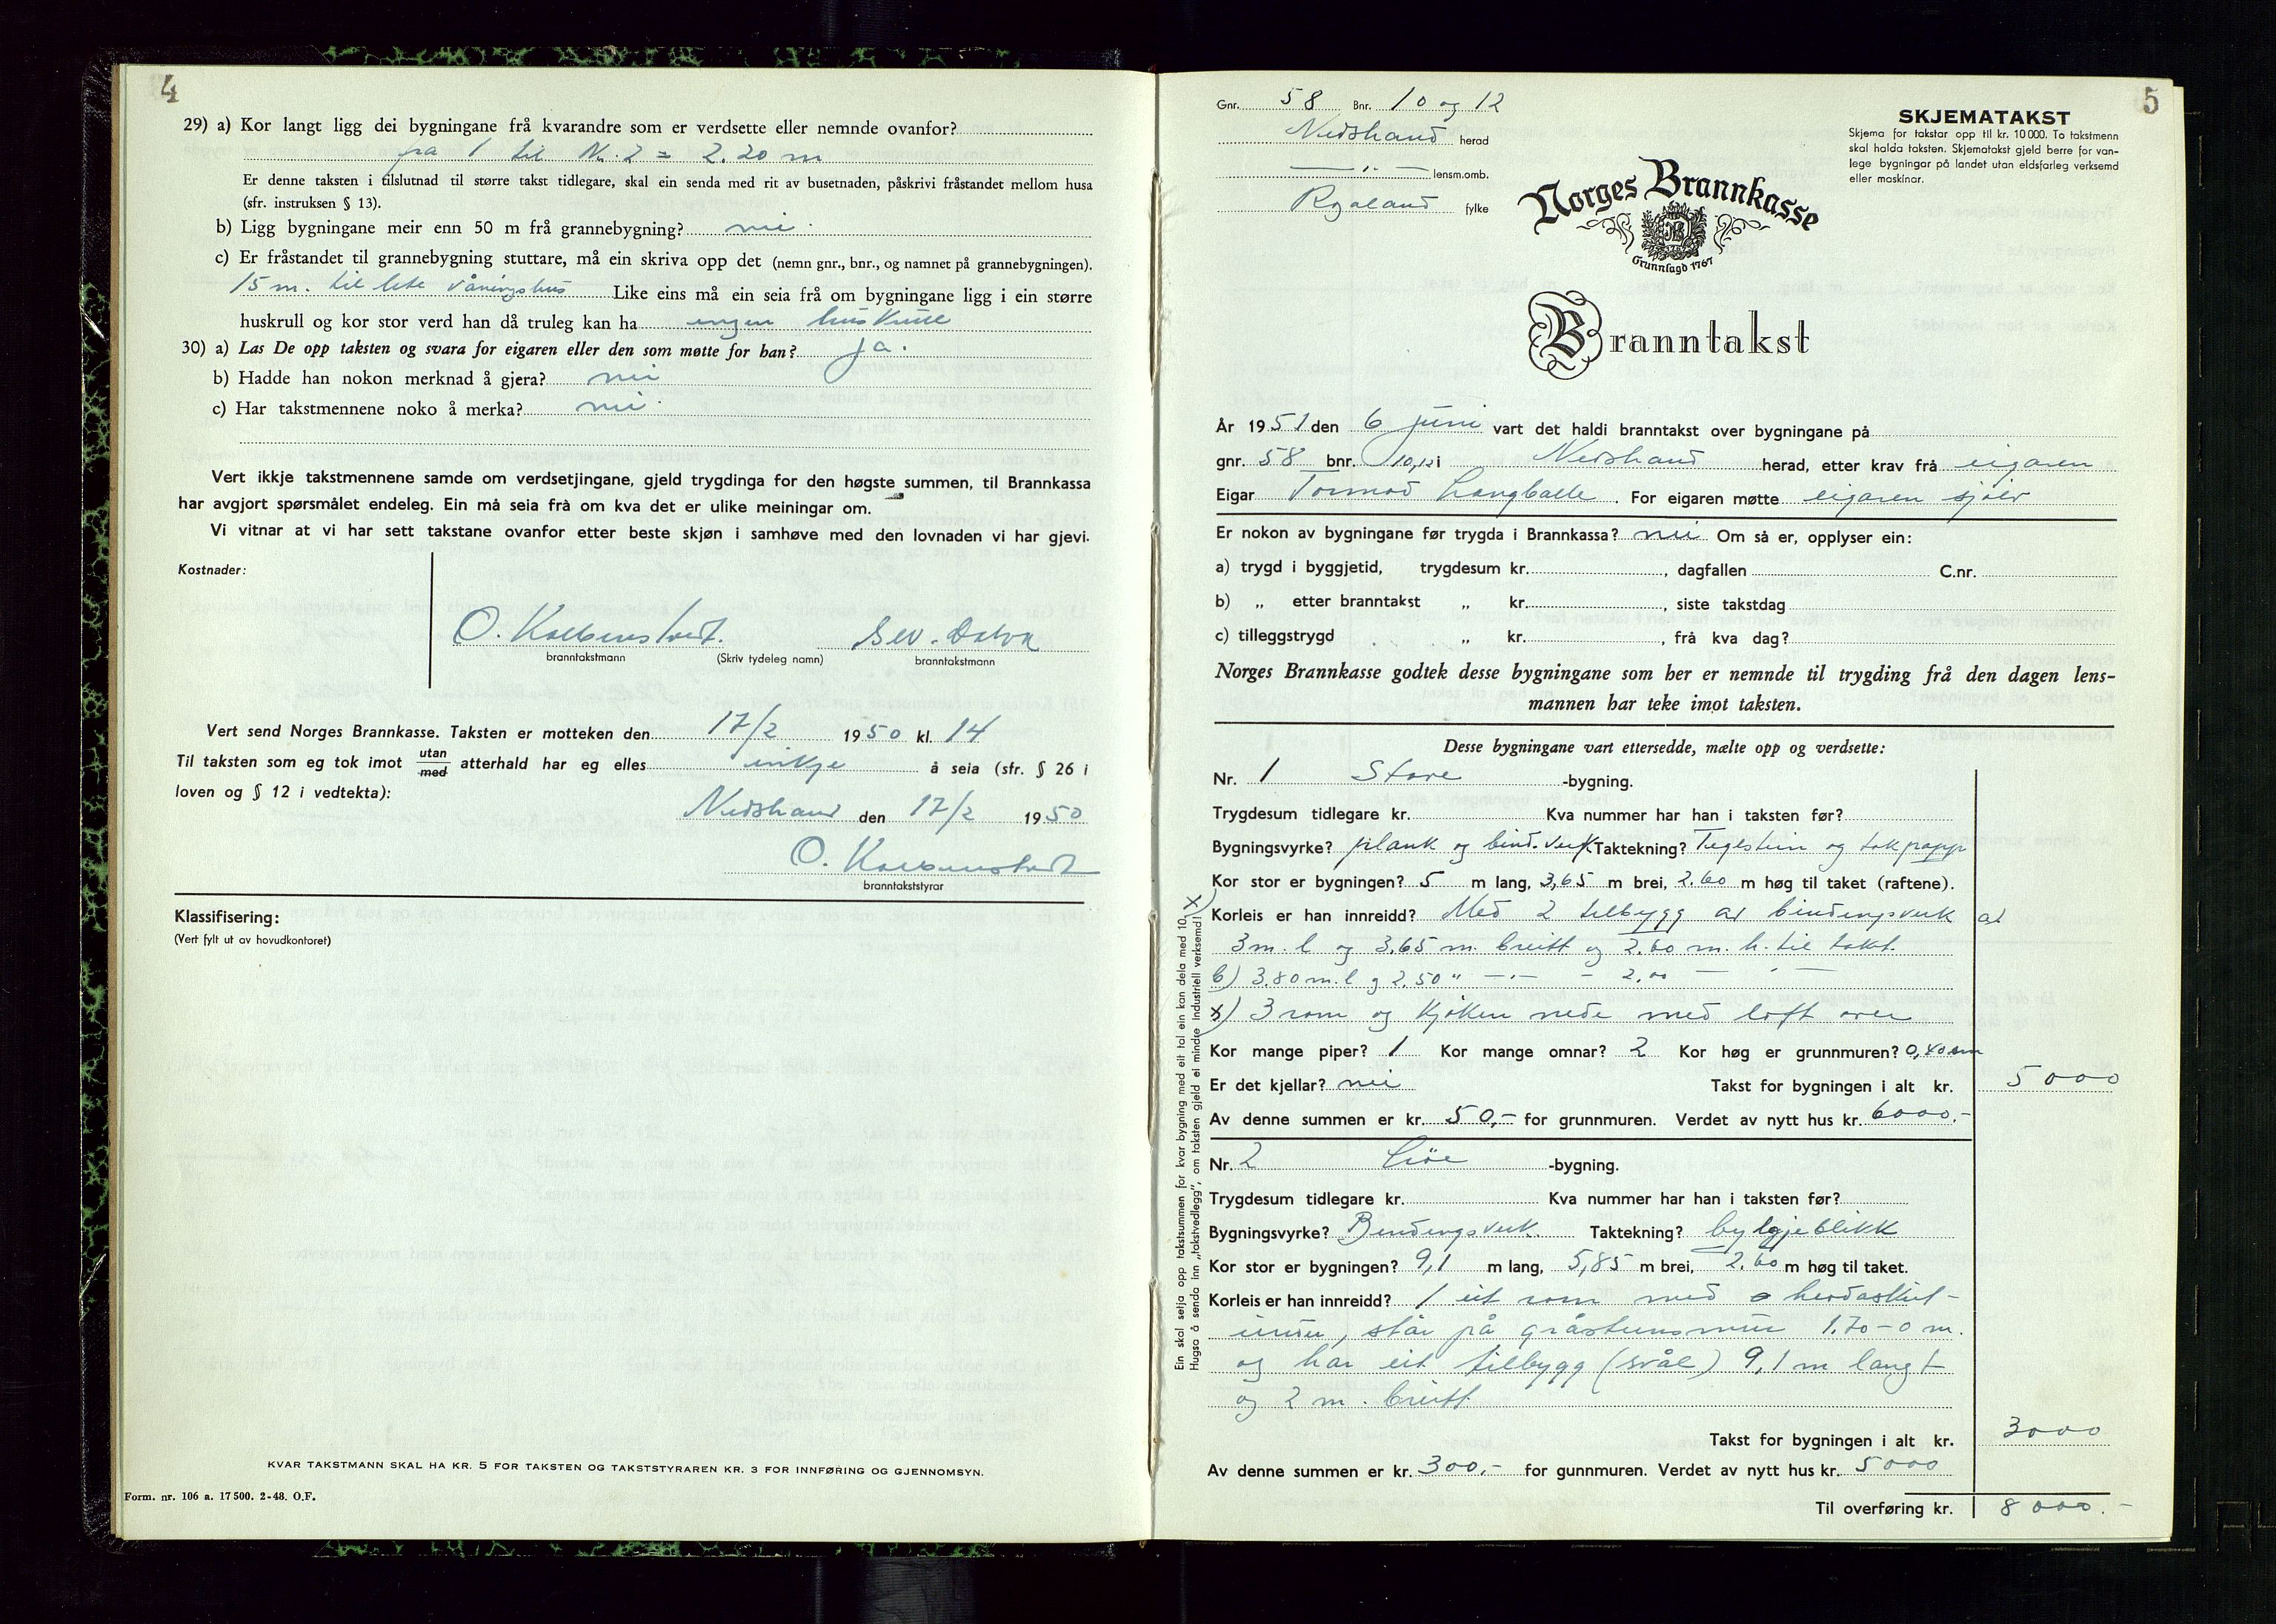 4
29) a) Kor langt ligg dei bygningane frå kvarandre som er verdsette eller nemnde ovanfor?
fra 1 til Nr. 2 = 2.20 m
Er denne taksten i tilslutnad til større takst tidlegare, skal ein senda med rit av busetnaden, påskrivi fråstandet mellom husa
(sfr. instruksen § 13).
b) Ligg bygningane meir enn 50 m frå grannebygning? nei
c) Er fråstandet til grannebygning stuttare, må ein skriva opp det (nemn gnr., bnr., og namnet på grannebygningen).
15 m. til lite våningshus Like eins må ein seia frå om bygningane ligg i ein større
huskrull og kor stor verd han då truleg kan ha ingen huskrull
30) a) Las De opp taksten og svara for eigaren eller den som møtte for han? ja.
b) Hadde han nokon merknad å gjera? nei
c) Har takstmennene noko å merka? nei.
Vert ikkje takstmennene samde om verdsetjingane, gjeld trygdinga for den høgste summen, til Brannkassa
har avgjort spørsmålet endeleg. Ein må seia frå om kva det er ulike meiningar om.
Vi vitnar at vi har sett takstane ovanfor etter beste skjøn i samhøve med den lovnaden vi har gjevi.
Kostnader:
O.
branntakstmann (Skriv tydeleg namn) branntakstmann
Vert send Norges Brannkasse. Taksten er motteken den 17/2 1950 kl. 14
Til taksten som eg tok imot utan/med atterhald har eg elles inkje å seia (sfr. § 26 i
loven og § 12 i vedtekta):
Nedshand den 17/2 1950
O.
branntakststyrar
Klassifisering:
(Vert fylt ut av hovudkontoret)
KVAR TAKSTMANN SKAL HA KR. 5 FOR TAKSTEN OG TAKSTSTYRAREN KR. 3 FOR INNFØRING OG GJENNOMSYN.
Form. nr. 106 a. 17 500. 2-48. O.F.
5
Gnr. 58 Bnr. 10 og 12
Nedshand herad
—"— lensm.omb.
Rogaland fylke
SKJEMATAKST
Skjema for takstar opp til kr. 10 000. To takstmenn
skal halda taksten. Skjematakst gjeld berre for van-
lege bygningar på landet utan eldsfarleg verksemd
eller maskinar.
Norges Brannkasse
Grunnlagd 1767
Branntakst
År 1951 den 6 juni vart det haldi branntakst over bygningane på
gnr. 58 bnr. 10,12 i Nedshand herad, etter krav frå eigaren
Eigar Tormod Langballe. For eigaren møtte eigaren sjølv
Er nokon av bygningane før trygda i Brannkassa? nei Om så er, opplyser ein:
a) trygd i byggjetid, trygdesum kr. , dagfallen C.nr.
b) „ etter branntakst „ kr. , siste takstdag
c) tilleggstrygd „ kr. , frå kva dag?
Norges Brannkasse godtek desse bygningane som her er nemnde til trygding frå den dagen lens-
mannen har teke imot taksten.
Desse bygningane vart ettersedde, mælte opp og verdsette:
Nr. 1 Stove -bygning.
Trygdesum tidlegare kr. Kva nummer har han i taksten før?
Bygningsvyrke? plank og bind.verk Taktekning? Teglstein og takpapp
Kor stor er bygningen? 5 m lang, 3,65 m brei, 2.60 m høg til taket (raftene).
Korleis er han innreidd? Med 2 tilbygg av bindingsverk a)
3 m. l og 3,65 m. breitt og 2.60 m. h. til taket.
b) 3.80 m. l og 2.50 " —"— - 2.00 — " —
x) 3 rom og kjøken nede med loft over
Kor mange piper? 1 Kor mange omnar? 2 Kor høg er grunnmuren? 0,40 m
Er det kjellar? nei Takst for bygningen i alt kr. 5000
Av denne summen er kr. 50,- for grunnmuren. Verdet av nytt hus kr. 6000.-
Nr. 2 Løe -bygning.
Trygdesum tidlegare kr. Kva nummer har han i taksten før?
Bygningsvyrke? Bindingsverk Taktekning? bylgjeblikk
Kor stor er bygningen? 9,1 m lang, 5,85 m brei, 2.60 m høg til taket.
Korleis er han innreidd? 1 eit rom med
står på gråsteinsmur 1.70-0 m.
og har eit tilbygg (svål) 9,1 m langt
og 2 m. breitt
Takst for bygningen i alt kr. 3000
Av denne summen er kr. 300,- for gunnmuren. Verdet av nytt hus kr. 5000
Til overføring kr. 8000.-
Ein skal setja opp takstsummen for kvar bygning med eit tal ein kan dela med 10. x)
Hugsa å senda inn „takstvedlegg”, om taksten gjeld ei mindre industriell verksemd!